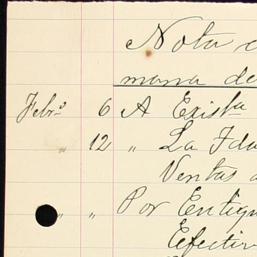 Nota
mana de
Febº 6 A Exista
" 12 " La Yda
Ventas
" " Por Entiqu
Efectiv